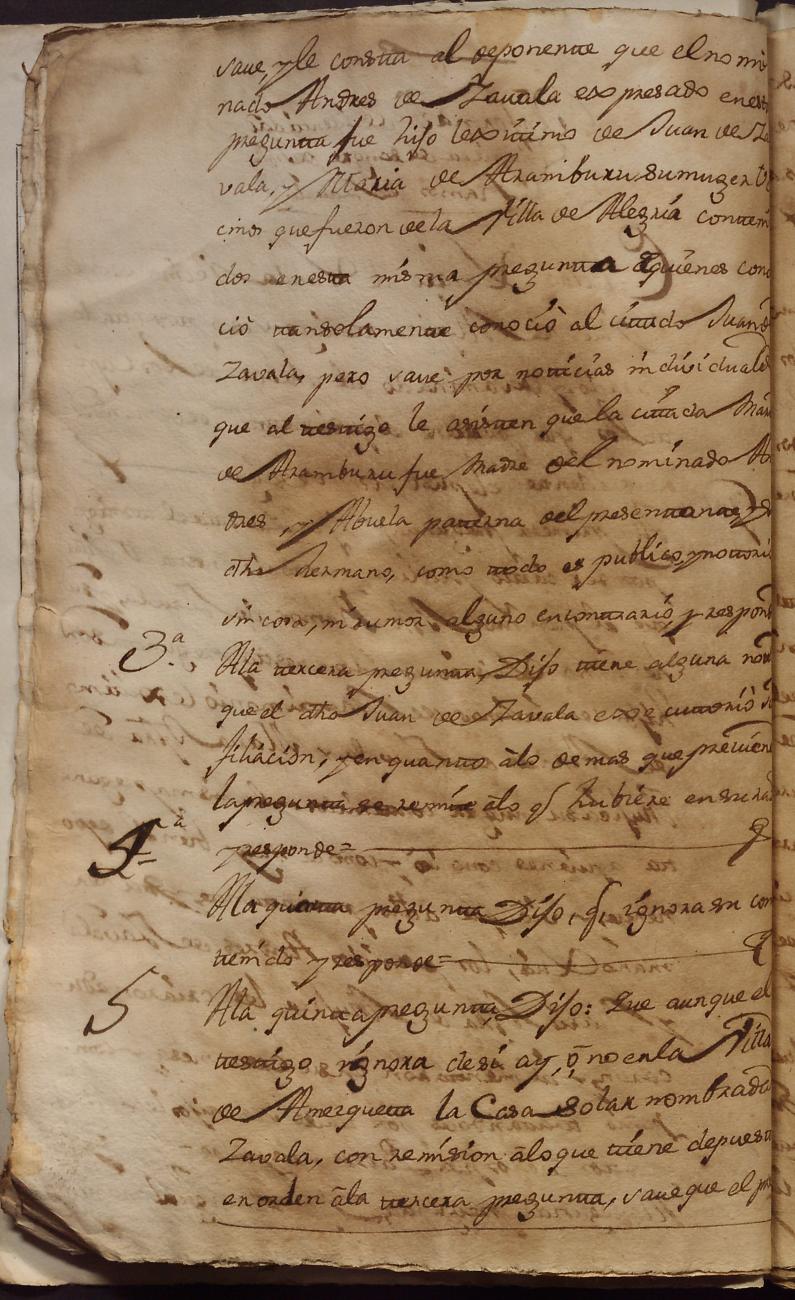 save, y le consta al deponente que el nomi
nado Andres de Zavala expresado en esta
pregunta fue hijo lexitimo de Juan de Za
vala, y Maria de Aramburu su muger ve
cinos que fueron de la Villa de Alegria conteni
dos en esta misma pregunta de quienes cono
ciò tansolamente conociò al citado Juan de
Zavala, pero save por noticias individuales
que al testigo le asisten que la citada Maria
de Aramburu fue Madre del nominado An
dres, y Abuela paterna del presentante, y
dho hermano, como todo es publico, y notorio
sin cosa, ni rumor alguno en contrario y responde
3.ª A la tercera pregunta, Dijo tiene alguna noticia
que el dho Juan de Zavala executoriò su
filiación, y en quanto â lo demas que previene
la pregunta se remite â lo q hubiere en su razon
y responde =
4.ª A la quarta pregunta Dijo, q ignora su con
tenido y responde =
5 A la quinta pregunta, Dijo: Que aunque el
testigo ignora de si ay, ô no en la Villa
de Amezqueta la Casa Solar nombrada
Zavala, con remision â lo que tiene depuesto
en orden â la tercera pregunta, save que el